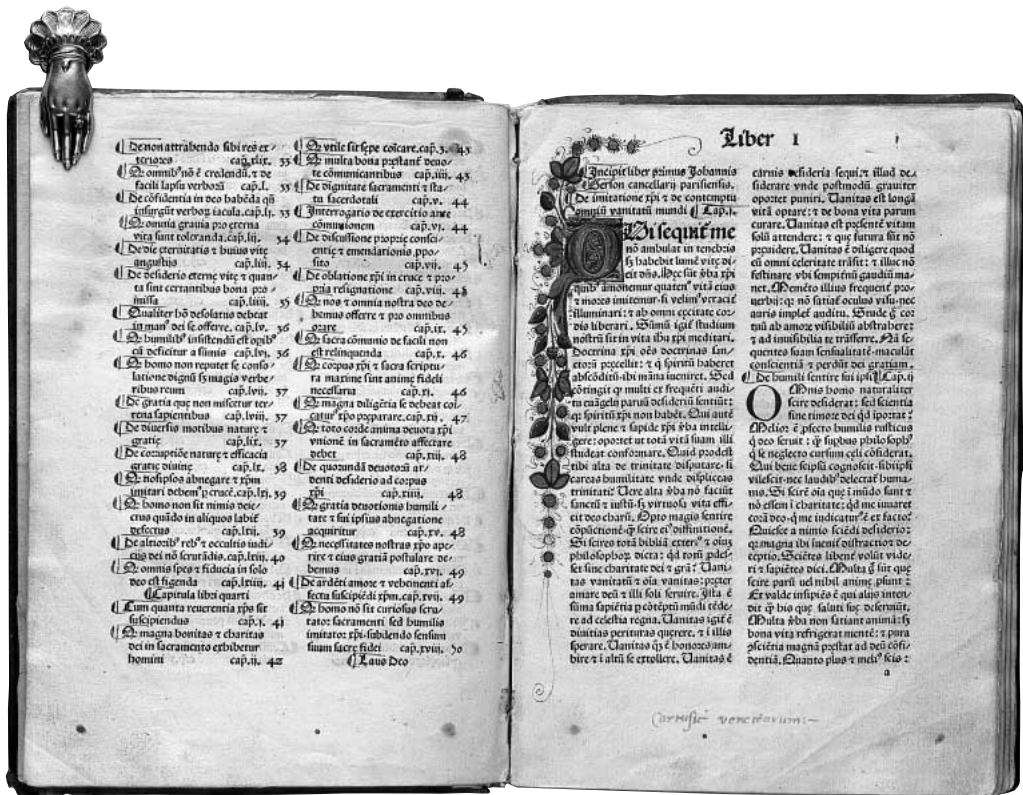 De non attrahendo sibi res ex-
teriores cap̄. xlix. 33
Q̄ omnib⁹ nō ē credendū, ⁊ de
facili lapsu verborū cap̄. l. 33
De cōfidentia in deo habēda qn̄
insurgūt verboꝝ iacula. cap̄. lj. 33
Q̄ omnia grauia pro eterna
vita sunt toleranda. cap̄. lij. 34
De die eternitatis ⁊ huius vitę
angustijs cap̄. liij. 34
De desiderio eternę vitę ⁊ quan-
ta sint certantibus bona pro-
missa cap̄. liiij. 35
Qualiter hō desolatus debeat
in man⁹ dei se offerre. cap̄. lv. 36
Q̄ humilib⁹ insistendū est opib⁹
cū deficitur a sūmis cap̄. lvj. 36
Q̄ homo non reputet se conso-
latione dignū sꝫ magis verbe-
ribus reum cap̄. lvij. 37
De gratia que non miscetur ter-
rena sapientibus cap̄. lviij. 37
De diuersis motibus naturę ⁊
gratię cap̄. lix. 37
De corruptiōe naturę ⁊ efficacia
gratię diuinę cap̄. lx. 38
Q̄ nosipsos abnegare ⁊ xp̄m
imitari debem⁹ ꝑ crucē. cap̄. lxj. 39
Q̄ homo non sit nimis deie-
ctus quādo in aliquos labit̄
defectus cap̄. lxij. 39
De altiorib⁹ reb⁹ ⁊ occultis iudi-
cijs dei nō scrutādis. cap̄. lxiij. 40
Q̄ omnis spes ⁊ fiducia in solo
deo est figenda cap̄. lxiiij. 41
Capitula libri quarti
Cum quanta reuerentia xp̄s sit
suscipiendus cap̄. j. 41
Q̄ magna bonitas ⁊ charitas
dei in sacramento exhibetur
homini cap̄. ij. 42
Q̄ vtile sit sępe cōicare. cap̄. 3. 43
Q̄ multa bona prestant̄ deuo-
te cōmunicantibus cap̄. iiij. 43
De dignitate sacramenti ⁊ sta-
tu sacerdotali cap̄. v. 44
Interrogatio de exercitio ante
cōmunionem cap̄. vj. 44
De discussione proprię consci-
entię ⁊ emendationis ꝓpo-
sito cap̄. vij. 45
De oblatione xp̄i in cruce ⁊ pro-
pria resignatione cap̄. viij. 45
Q̄ nos ⁊ omnia nostra deo de-
bemus offerre ⁊ pro omnibus
orare cap̄. ix. 45
Q̄ sacra cōmunio de facili non
est relinquenda cap̄. x. 46
Q̄ corpus xp̄i ⁊ sacra scriptu-
ra maxime sint anime fideli
necessaria cap̄. xj. 46
Q̄ magna diligētia se debeat cō-
icatur⁹ xp̄o pręparare. cap̄. xij. 47
Q̄ toto corde anima deuota xp̄i
vnionē in sacramēto affectare
debet cap̄. xiij. 48
De quorundā deuotorū ar-
denti desiderio ad corpus
xp̄i cap̄. xiiij. 48
Q̄ gratia deuotionis humili-
tate ⁊ sui ipsius abnegatione
acquiritur cap̄. xv. 48
Q̄ necessitates nostras xp̄o ape-
rire ⁊ eius gratiā postulare de-
bemus cap̄. xvj. 49
De ardēti amore ⁊ vehementi af-
fectu suscipiēdi xp̄m. cap̄. xvij. 49
Q̄ homo nō sit curiosus scru-
tator sacramenti sed humilis
imitator xp̄i subdendo sensum
suum sacre fidei cap̄. xviij. 50
Laus Deo
Liber I
Incipit liber primus Johannis
Gerson cancellarij parisiensis.
De imitatione xp̄i ⁊ de contemptu
omniū vanitatū mundi Cap̄. j.
Qui sequit̄ me
nō ambulat in tenebris
sꝫ habebit lumē vitę di-
cit dn̄s. Hęc sūt v̄ba xp̄i
quib⁹ amonemur quaten⁹ vitā eius
⁊ mores imitemur si velim⁹ veracit̄
illuminari: ⁊ ab omni cęcitate cor-
dis liberari. Sūmū igit̄ studium
nostrū sit in vita ihu xp̄i meditari.
Doctrina xp̄i oēs doctrinas san-
ctorū pręcellit: ⁊ q̄ spiritū haberet
absconditū ibi māna inueniret. Sed
cōtingit qꝫ multi ex frequēti audi-
tu euāgelij paruū desideriū sentiūt:
qꝛ spiritū xp̄i non habēt. Qui autē
vult plene ⁊ sapide xp̄i v̄ba intelli-
gere: oportet ut totā vitā suam illi
studeat conformare. Quid prodest
tibi alta de trinitate disputare: si
careas humilitate vnde displiceas
trinitati? Uere alta v̄ba nō faciūt
sanctū ⁊ iustū: sꝫ virtuosa vita effi-
cit deo charū. Opto magis sentire
cōpūctionē qꝫ scire ei⁹ diffinitionē.
Si scires totā bibliā exteri⁹ ⁊ oīuꝫ
philosophoꝝ dicta: qd totū ꝓdes-
set sine charitate dei ⁊ grā? Uani-
tas vanitatū ⁊ oīa vanitas: pręter
amare deū ⁊ illi soli seruire. Ista ē
sūma sapiētia ꝑ cōtēptū mūdi tēde-
re ad celestia regna. Uanitas igit̄ ē
diuitias perituras quęrere, ⁊ ī illis
sperare. Uanitas qꝫ ē honores am-
bire ⁊ ī altū se extollere. Uanitas ē
carnis desideria sequi: ⁊ illud de-
siderare vnde postmodū grauiter
oportet puniri. Uanitas est longā
vitā optare: ⁊ de bona vita parum
curare. Uanitas est pręsentē vitam
solū attendere: ⁊ que futura sūt nō
pręuidere. Uanitas ē diligere quod
cū omni celeritate trāsit: ⁊ illuc nō
festinare vbi sempitnū gaudiū ma-
net. Memēto illius frequent̄ pro-
uerbij: qꝛ nō satiat̄ oculus visu: nec
auris implet̄ auditu. Stude g̊ cor
tuū ab amore visibiliū abstrahere:
⁊ ad inuisibilia te trāsferre. Nā se-
quentes suam sensualitatē maculāt
conscientiā ⁊ perdūt dei gratiam.
De humili sentire sui ipsi⁹ Cap̄. ij
OMnis homo naturaliter
scire desiderat: sed scientia
sine timore dei qd īportat?
Melior ē ꝓfecto humilis rusticus
q̄ deo seruit: qꝫ supbus philosoph⁹
q̄ se neglecto cursum cęli cōsiderat.
Qui bene seipsū cognoscit sibiipsi
vilescit nec laudib⁹ delectat̄ huma-
nis. Si scirē oīa quę ī mūdo sunt ⁊
nō essem ī charitate: qd me iuuaret
corā deo q̄ me iudicatur⁹ ē ex facto?
Quiesce a nimio sciēdi desiderio:
qꝛ magna ibi īuenit̄ distractio ⁊ de-
ceptio. Sciētes libent̄ volūt vide-
ri ⁊ sapiētes dici. Multa q̄ sūt quę
scire parū uel nihil anime ꝓsunt:
Et valde insipiēs ē qui alijs inten-
dit qꝫ his quę saluti suę deseruiūt.
Multa v̄ba non satiant animā: sꝫ
bona vita refrigerat mentē: ⁊ pura
ꝯsciētia magnā pręstat ad deū cōfi-
dentiā. Quanto plus ⁊ meli⁹ scis:
a